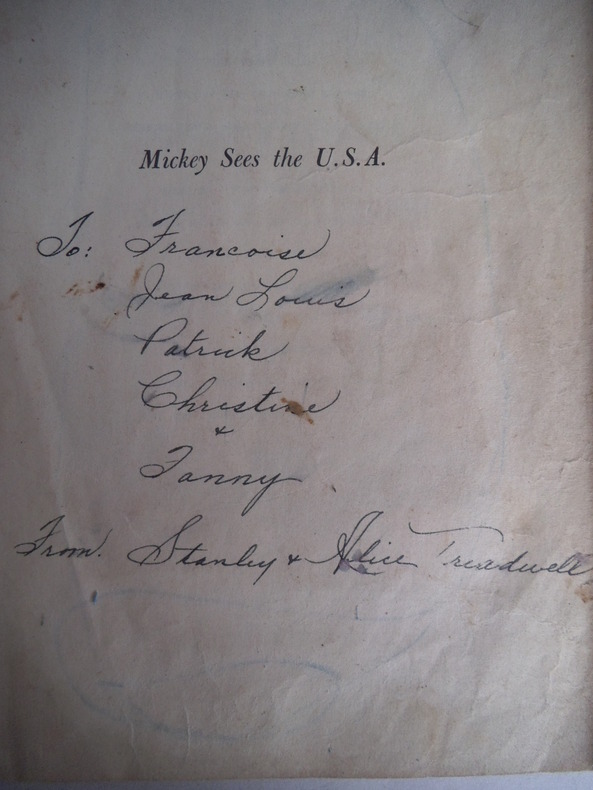 Mickey Sees the U.S.A.
To: Francoise
Jean Louis
Patrick
Christine
&
Fanny
From. Stanley & Alice Treadwell